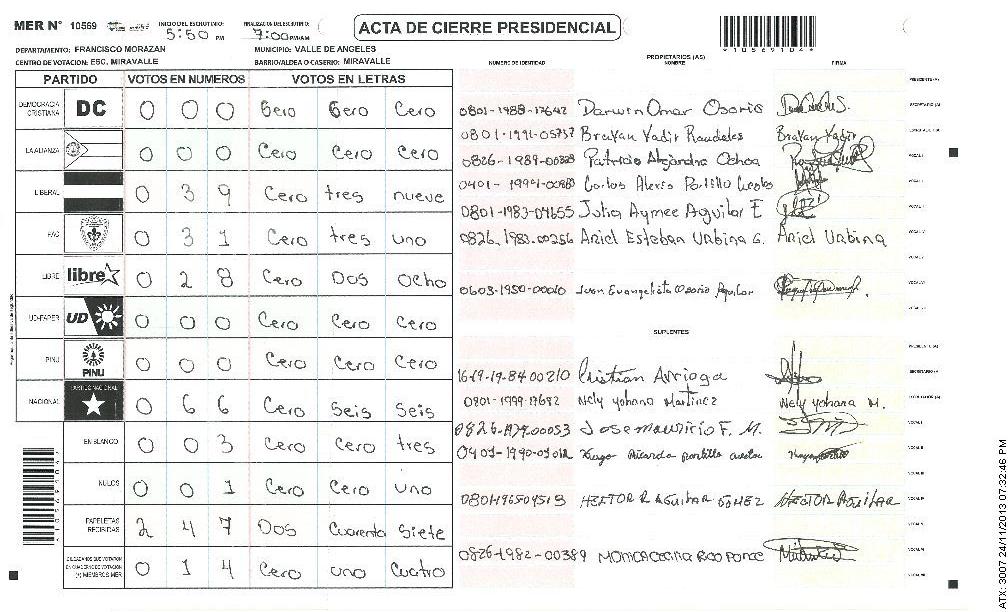 MER N° 10569
INICIO DEL ESCRUTINIO: 5:50 PM
FINALIZACION DEL ESCRUTINIO: 7:00 PM/AM
ACTA DE CIERRE PRESIDENCIAL
*10569104*
DEPARTAMENTO: FRANCISCO MORAZAN
MUNICIPIO: VALLE DE ANGELES
CENTRO DE VOTACION: ESC. MIRAVALLE
BARRIO/ALDEA O CASERIO: MIRAVALLE
PARTIDO VOTOS EN NUMEROS VOTOS EN LETRAS
DEMOCRACIA CRISTIANA DC 0 0 0 Cero Cero Cero
LA ALIANZA 0 0 0 Cero Cero Cero
LIBERAL 0 3 9 Cero tres nueve
PAC 0 3 1 Cero tres uno
LIBRE libre 0 2 8 Cero Dos Ocho
UD-FAPER UD 0 0 0 Cero Cero Cero
PINU PINU 0 0 0 Cero Cero Cero
NACIONAL PARTIDO NACIONAL 0 6 6 Cero Seis Seis
EN BLANCO 0 0 3 Cero Cero tres
NULOS 0 0 1 Cero Cero uno
PAPELETAS RECIBIDAS 2 4 7 Dos Cuarenta Siete
CIUDADANOS QUE VOTARON EN CUADERNO DE VOTACION (+) MIEMBROS MER 0 1 4 Cero uno Cuatro
PROPIETARIOS (AS)
NUMERO DE IDENTIDAD NOMBRE FIRMA
0801-1988-17642 Darwin Omar Osorio
0801-1991-05757 Brayan Yadir Raudales Brayan Yadir
Patricia Alejandra Ochoa
Carlos Alexis Portillo
0801-1983-04655 Julia Aymee Aguilar E
0826-1983-00256 Ariel Esteban Urbina G. Ariel Urbina
0603-1950-00010 Juan Evangelista Osorio Aguilar
SUPLENTES
16-19-19-84 00210 Cristian Arriaga
0801-1999-17692 Nely Yohana Martinez Nely Yohana M.
0826-1979-00053 Jose Mauricio F. M.
portillo
0801196509513 HECTOR R AGUILAR GOMEZ HECTOR AGUILAR
0826-1982-00389
ATX: 3007 24/11/2013 07:32:46 PM